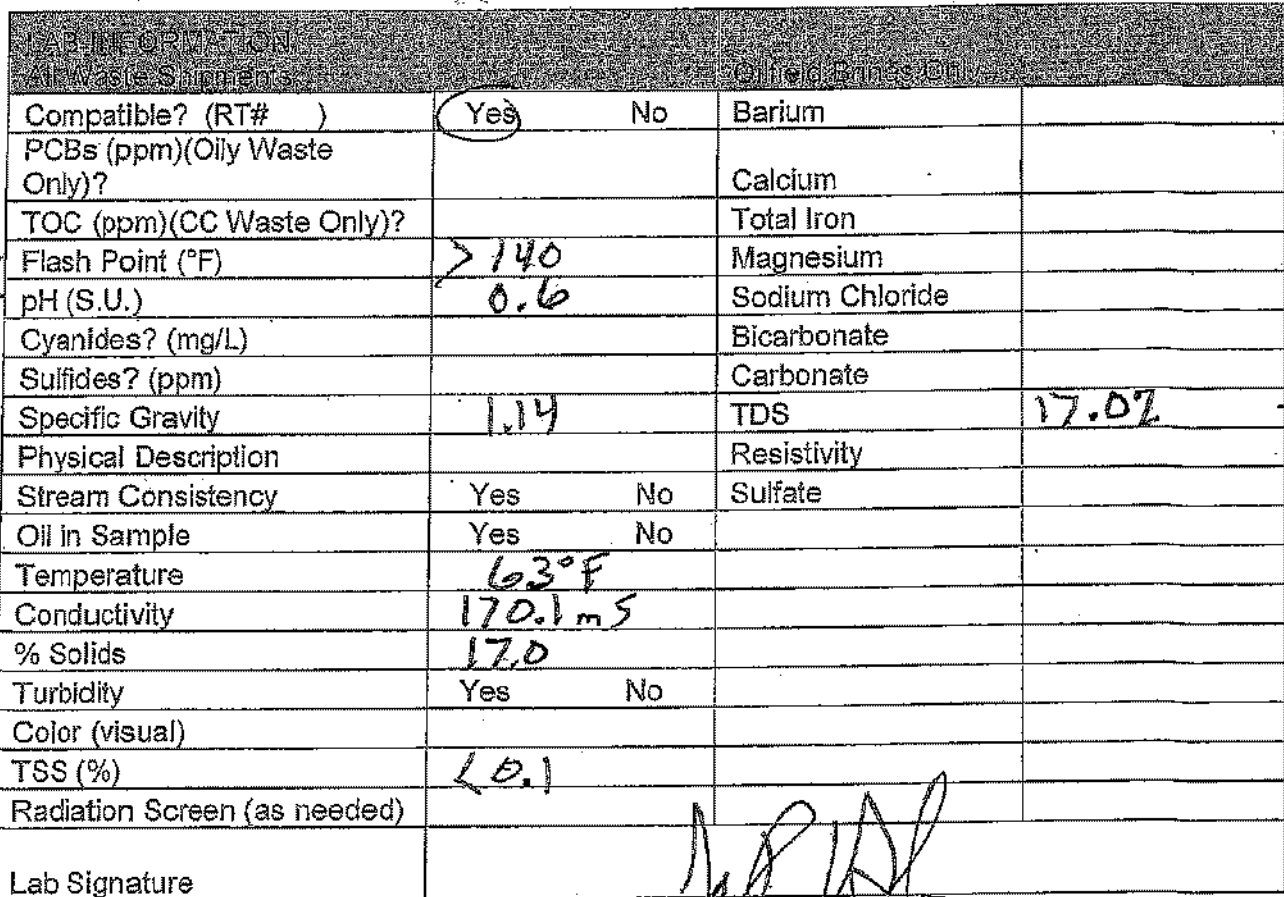 LAB INFORMATION
All Waste Shipments Oilfield Brines Only
Compatible? (RT# ) Yes No Barium
PCBs (ppm)(Oily Waste
Only)? Calcium
TOC (ppm)(CC Waste Only)? Total Iron
Flash Point (°F) >140 Magnesium
pH (S.U.) 0.6 Sodium Chloride
Cyanides? (mg/L) Bicarbonate
Sulfides? (ppm) Carbonate
Specific Gravity 1.14 TDS
Physical Description Resistivity
Stream Consistency Yes No Sulfate
Oil in Sample Yes No
Temperature 63°F
Conductivity 170.1 mS
% Solids 17.0
Turbidity Yes No
Color (visual)
TSS (%) <0.1
Radiation Screen (as needed)
Lab Signature